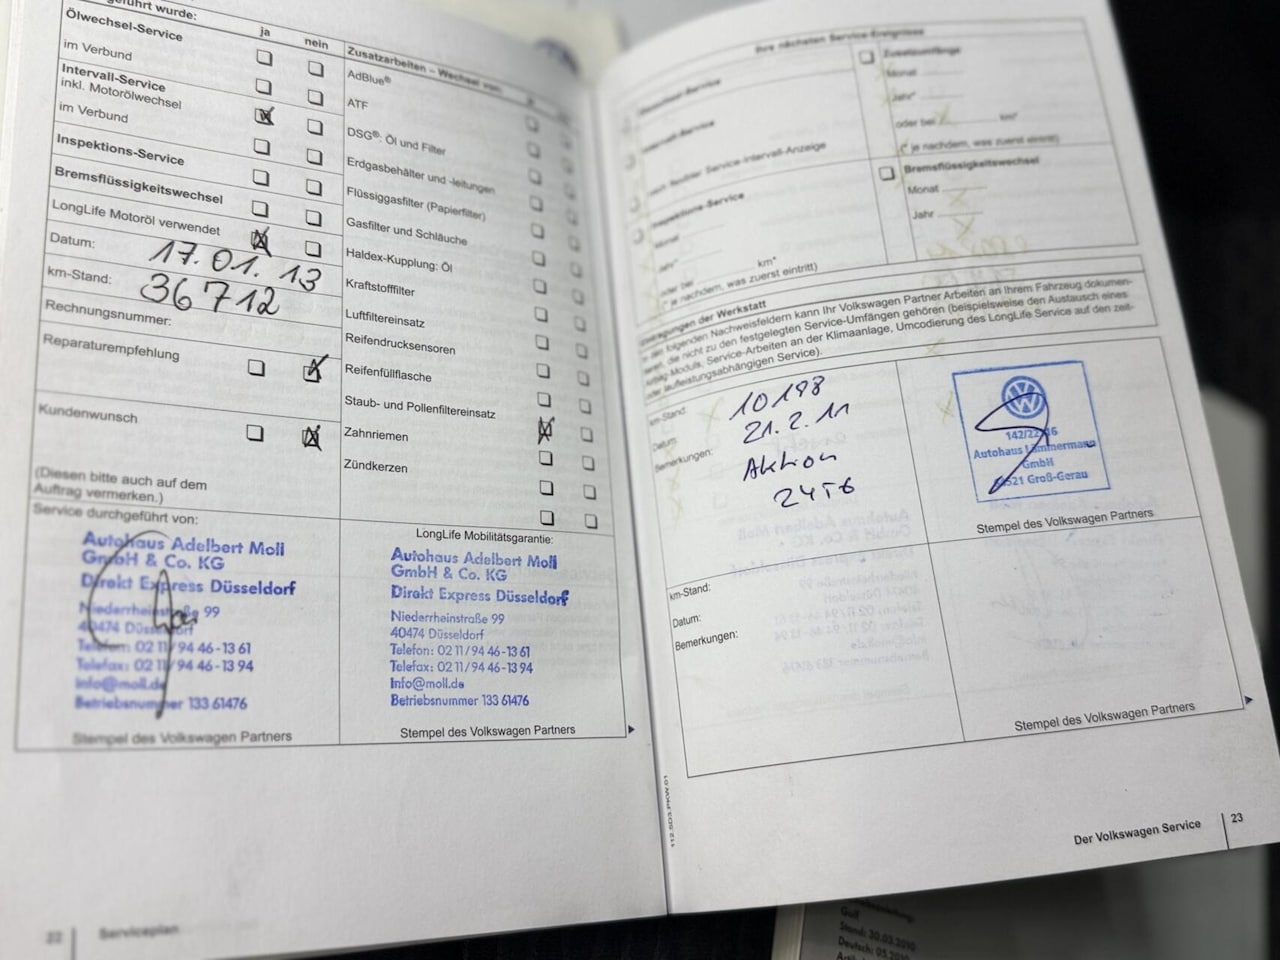 geführt wurde:
ja nein
Ölwechsel-Service
im Verbund
Intervall-Service
inkl. Motorölwechsel
im Verbund
Inspektions-Service
Bremsflüssigkeitswechsel
LongLife Motoröl verwendet
Datum: 17.01.13
km-Stand: 36712
Rechnungsnummer:
Reparaturempfehlung
Kundenwunsch
(Diesen bitte auch auf dem
Auftrag vermerken.)
Service durchgeführt von:
Autohaus Adelbert Moll
GmbH & Co. KG
Direkt Express Düsseldorf
Niederrheinstraße 99
40474 Düsseldorf
Telefon: 02 11/94 46-13 61
Telefax: 02 11/94 46-13 94
info@moll.de
Betriebsnummer 133 61476
Stempel des Volkswagen Partners
Zusatzarbeiten – Wechsel von:
AdBlue®
ATF
DSG®: Öl und Filter
Erdgasbehälter und -leitungen
Flüssiggasfilter (Papierfilter)
Gasfilter und Schläuche
Haldex-Kupplung: Öl
Kraftstofffilter
Luftfiltereinsatz
Reifendrucksensoren
Reifenfüllflasche
Staub- und Pollenfiltereinsatz
Zahnriemen
Zündkerzen
LongLife Mobilitätsgarantie:
Autohaus Adelbert Moll
GmbH & Co. KG
Direkt Express Düsseldorf
Niederrheinstraße 99
40474 Düsseldorf
Telefon: 02 11/94 46-13 61
Telefax: 02 11/94 46-13 94
Info@moll.de
Betriebsnummer 133 61476
Stempel des Volkswagen Partners
22 Serviceplan
Ihre nächsten Service-Ereignisse
Intervall-Service
nach flexibler Service-Intervall-Anzeige
Inspektions-Service
Monat
Jahr*
oder bei km*
(* je nachdem, was zuerst eintritt)
Zusatzumfänge
Monat
Jahr*
oder bei km*
(* je nachdem, was zuerst eintritt)
Bremsflüssigkeitswechsel
Monat
Jahr
Eintragungen der Werkstatt
In den folgenden Nachweisfeldern kann Ihr Volkswagen Partner Arbeiten an Ihrem Fahrzeug dokumen-
tieren, die nicht zu den festgelegten Service-Umfängen gehören (beispielsweise den Austausch eines
Airbag-Moduls, Service-Arbeiten an der Klimaanlage, Umcodierung des LongLife Service auf den zeit-
oder laufleistungsabhängigen Service).
km-Stand: 10198
Datum: 21.2.11
Bemerkungen: Aktion
24T6
142/22
Autohaus Lämmermann
GmbH
521 Groß-Gerau
Stempel des Volkswagen Partners
km-Stand:
Datum:
Bemerkungen:
Stempel des Volkswagen Partners
112.5D3.PKW.01
Der Volkswagen Service 23
Golf
Stand: 30.03.2010
Deutsch: 05.2010